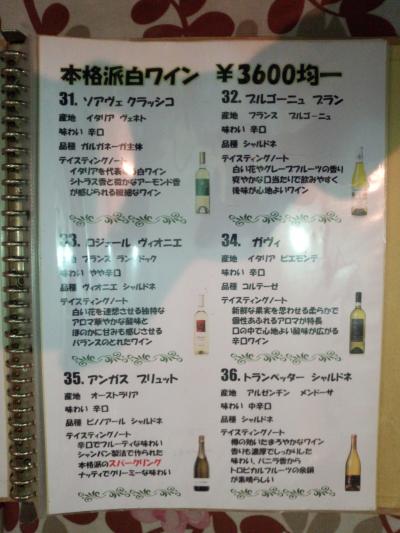 本格派白ワイン ￥3600均一
31. ソアヴェ クラッシコ
産地 イタリア ヴェネト
味わい 辛口
品種 ガルガネーガ主体
テイスティングノート
イタリアを代表する白ワイン
シトラス香と微かなアーモンド香
が感じられる繊細なワイン
32. ブルゴーニュ ブラン
産地 フランス ブルゴーニュ
味わい 辛口
品種 シャルドネ
テイスティングノート
白い花やグレープフルーツの香り
爽やかな口当たりで飲みやすく
後味が心地よいワイン
33. コジュール ヴィオニエ
産地 フランス ラングドック
味わい やや辛口
品種 ヴィオニエ シャルドネ
テイスティングノート
白い花を連想させる独特な
アロマ華やかな酸味と
ほのかに甘みも感じさせる
バランスのとれたワイン
34. ガヴィ
産地 イタリア ピエモンテ
味わい 辛口
品種 コルテーゼ
テイスティングノート
新鮮な果実を思わせる柔らかで
個性あふれるアロマが特長
口の中で心地よい酸味が広がる
辛口ワイン
35. アンガス ブリュット
産地 オーストラリア
味わい 辛口
品種 ピノノアール シャルドネ
テイスティングノート
辛口でフルーティな味わい
シャンパン製法で作られた
本格派のスパークリング
ナッティでクリーミーな味わい
36. トランペッター シャルドネ
産地 アルゼンチン メンドーサ
味わい 中辛口
品種 シャルドネ
テイスティングノート
樽の効いたまろやかなワイン
香りも濃厚でしっかりした
味わい、バニラ香から
トロピカルフルーツの余韻
が素晴らしい